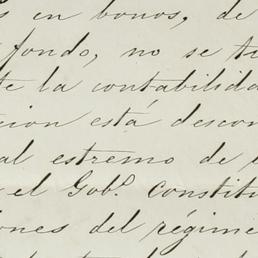 s en bonos, de
fondo, no se tu
te la contabilida
cion está descon
al estremo de
el Gob.º constitu
ones del régime